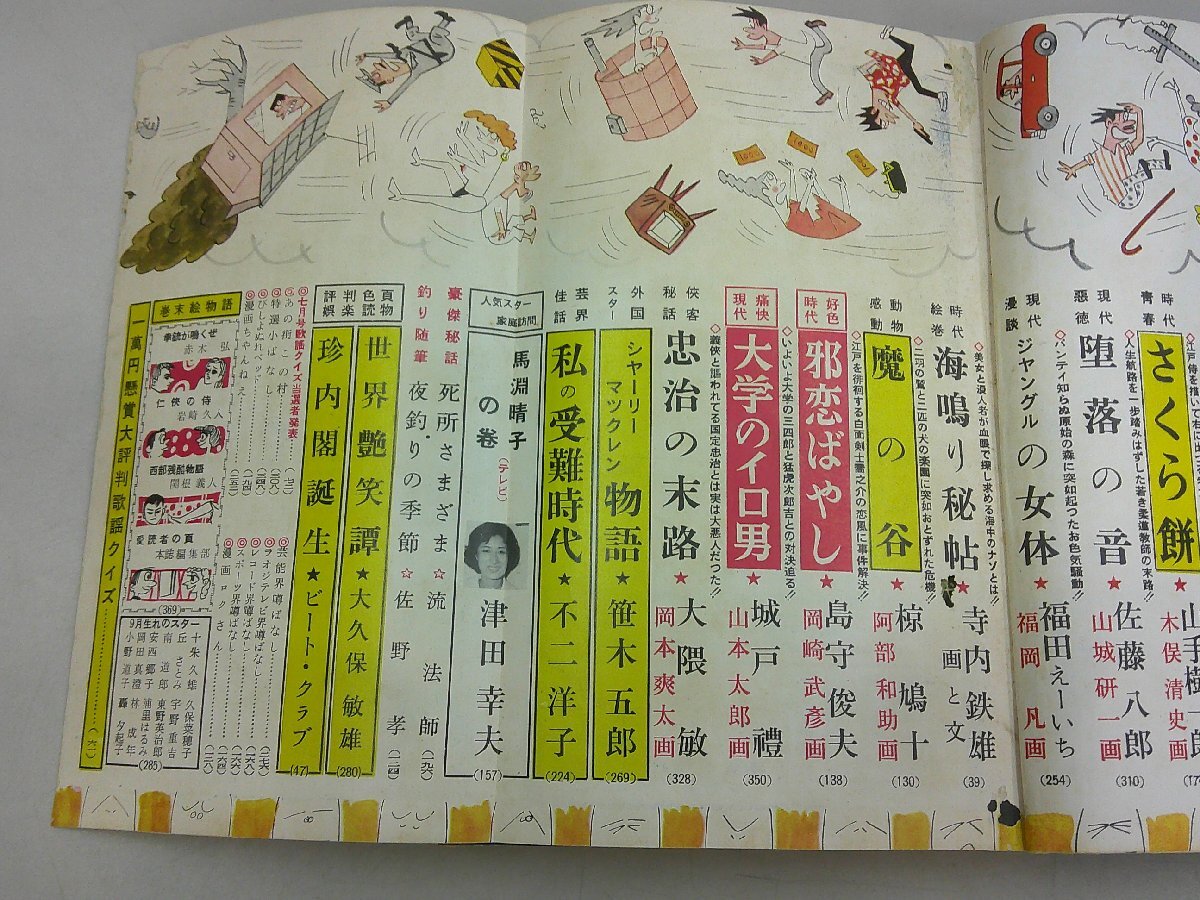 さくら餅
木俣清史画
青春
◇人生航路を一歩踏みはずした若き柔道教師の末路!!
現代悪徳
堕落の音★佐藤八郎
山城研一画
(310)
◇パンティ知らぬ原始の森に突如起つたお色気騒動!!
現代漫談
ジヤングルの女体★福田えーいち
福岡凡画
(254)
◇美女と浪人名が血眼で探し求める海牛のナゾとは!!
時代絵巻
海鳴り秘帖★寺内鉄雄
画と文
(39)
◇二羽の鷲と二匹の犬の楽園に突如おとずれた危機!!
動物感動
魔の谷★椋鳩十
阿部和助画
(130)
◇江戸を徘徊する白面剣士雪之介の恋風に事件解決!!
好色時代
邪恋ばやし★島守俊夫
岡崎武彦画
(138)
◇いよいよ大学の三四郎と猛虎次郎吉との対決迫る!!
痛快現代
大学のイロ男★城戸禮
山本太郎画
(350)
◇義侠と謳われてる国定忠治とは実は大悪人だつた!!
侠客秘話
忠治の末路★大隈敏
岡本爽太画
(328)
外国スター
シヤーリーマツクレン物語★笹木五郎
(269)
芸界佳話
私の受難時代★不二洋子
(224)
人気スター家庭訪問
馬淵晴子の巻
(テレビ)
津田幸夫
(157)
豪傑秘話
死所さまざま☆流法師
(一九六)
釣り随筆
夜釣りの季節☆佐野孝
(二四)
頁色読物
世界艶笑譚★大久保敏雄
(280)
評判娯楽
珍内閣誕生★ビート・クラブ
(47)
◎七月号歌謡クイズ当選者発表
◎あの街この村
◎特選小ばなし
◎びしよぬれベッド
◎漫画ちやんねえ
◎芸能界噂ばなし
◎ラオジテレビ界噂ばなし
◎レコード界噂ばなし
◎スポーツ界噂ばなし
◎漫画ロクさん
巻末絵物語
拳銃が鳴くぜ
赤木弘
仁侠の侍
岩崎久人
西部残酷物語
関根義人
愛読者の頁
本誌編集部
(369)
9月生れのスター
十朱久雄
丘さとみ
南道郎
安西郷子
岡田真澄
小野道子
久保菜穂子
宇野重吉
東野英治郎
浦里はるみ
林成年
轟夕起子
(285)
一萬円懸賞大評判歌謡クイズ